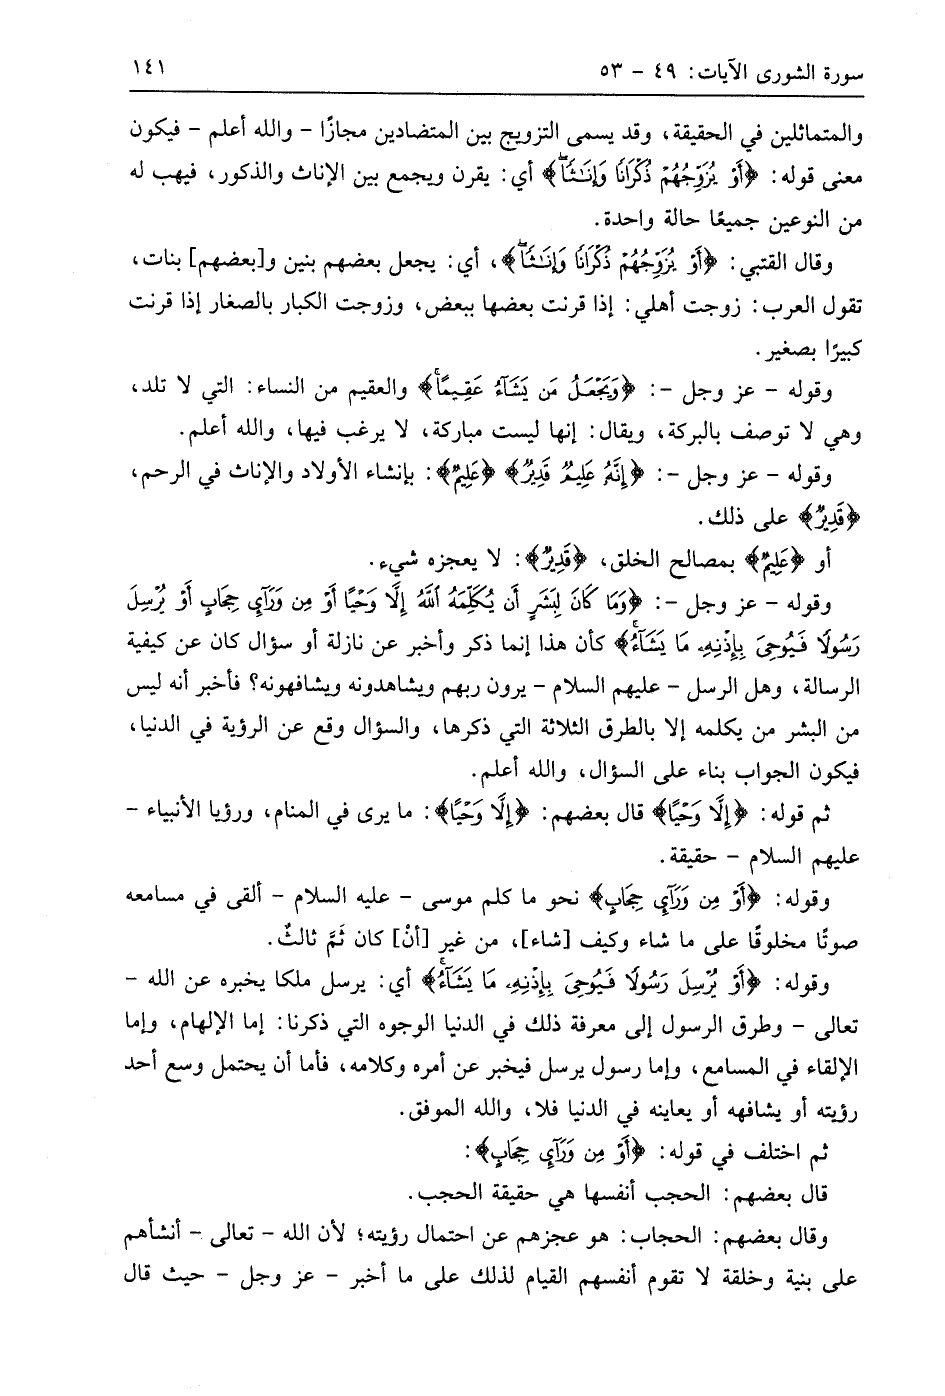 سورة الشورى الآيات: ٤٩ - ٥٣ ١٤١
والمتماثلين في الحقيقة، وقد يسمى التزويج بين المتضادين مجازًا - والله أعلم - فيكون
معنى قوله: ﴿أَوْ يُزَوِّجُهُمْ ذُكْرَانًا وَإِنَٰثًاۖ﴾ أي: يقرن ويجمع بين الإناث والذكور، فيهب له
من النوعين جميعًا حالة واحدة.
وقال القتبي: ﴿أَوْ يُزَوِّجُهُمْ ذُكْرَانًا وَإِنَٰثًاۖ﴾، أي: يجعل بعضهم بنين و[بعضهم] بنات،
تقول العرب: زوجت أهلي: إذا قرنت بعضها ببعض، وزوجت الكبار بالصغار إذا قرنت
كبيرًا بصغير.
وقوله - عز وجل -: ﴿وَيَجْعَلُ مَن يَشَآءُ عَقِيمًاۚ﴾ والعقيم من النساء: التي لا تلد،
وهي لا توصف بالبركة، ويقال: إنها ليست مباركة، لا يرغب فيها، والله أعلم.
وقوله - عز وجل -: ﴿إِنَّهُۥ عَلِيمٌ قَدِيرٌ﴾ ﴿عَلِيمٌ﴾: بإنشاء الأولاد والإناث في الرحم،
﴿قَدِيرٌ﴾ على ذلك.
أو ﴿عَلِيمٌ﴾ بمصالح الخلق، ﴿قَدِيرٌ﴾: لا يعجزه شيء.
وقوله - عز وجل -: ﴿وَمَا كَانَ لِبَشَرٍ أَن يُكَلِّمَهُ ٱللَّهُ إِلَّا وَحْيًا أَوْ مِن وَرَآئِ حِجَابٍ أَوْ يُرْسِلَ
رَسُولًا فَيُوحِىَ بِإِذْنِهِۦ مَا يَشَآءُۚ﴾ كأن هذا إنما ذكر وأخبر عن نازلة أو سؤال كان عن كيفية
الرسالة، وهل الرسل - عليهم السلام - يرون ربهم ويشاهدونه ويشافهونه؟ فأخبر أنه ليس
من البشر من يكلمه إلا بالطرق الثلاثة التي ذكرها، والسؤال وقع عن الرؤية في الدنيا،
فيكون الجواب بناء على السؤال، والله أعلم.
ثم قوله: ﴿إِلَّا وَحْيًا﴾ قال بعضهم: ﴿إِلَّا وَحْيًا﴾: ما يرى في المنام، ورؤيا الأنبياء -
عليهم السلام - حقيقة.
وقوله: ﴿أَوْ مِن وَرَآئِ حِجَابٍ﴾ نحو ما كلم موسى - عليه السلام - ألقى في مسامعه
صوتًا مخلوقًا على ما شاء وكيف [شاء]، من غير [أنْ] كان ثَمَّ ثالثٌ.
وقوله: ﴿أَوْ يُرْسِلَ رَسُولًا فَيُوحِىَ بِإِذْنِهِۦ مَا يَشَآءُۚ﴾ أي: يرسل ملكا يخبره عن الله -
تعالى - وطرق الرسول إلى معرفة ذلك في الدنيا الوجوه التي ذكرنا: إما الإلهام، وإما
الإلقاء في المسامع، وإما رسول يرسل فيخبر عن أمره وكلامه، فأما أن يحتمل وسع أحد
رؤيته أو يشافهه أو يعاينه في الدنيا فلا، والله الموفق.
ثم اختلف في قوله: ﴿أَوْ مِن وَرَآئِ حِجَابٍ﴾:
قال بعضهم: الحجب أنفسها هي حقيقة الحجب.
وقال بعضهم: الحجاب: هو عجزهم عن احتمال رؤيته؛ لأن الله - تعالى - أنشأهم
على بنية وخلقة لا تقوم أنفسهم القيام لذلك على ما أخبر - عز وجل - حيث قال